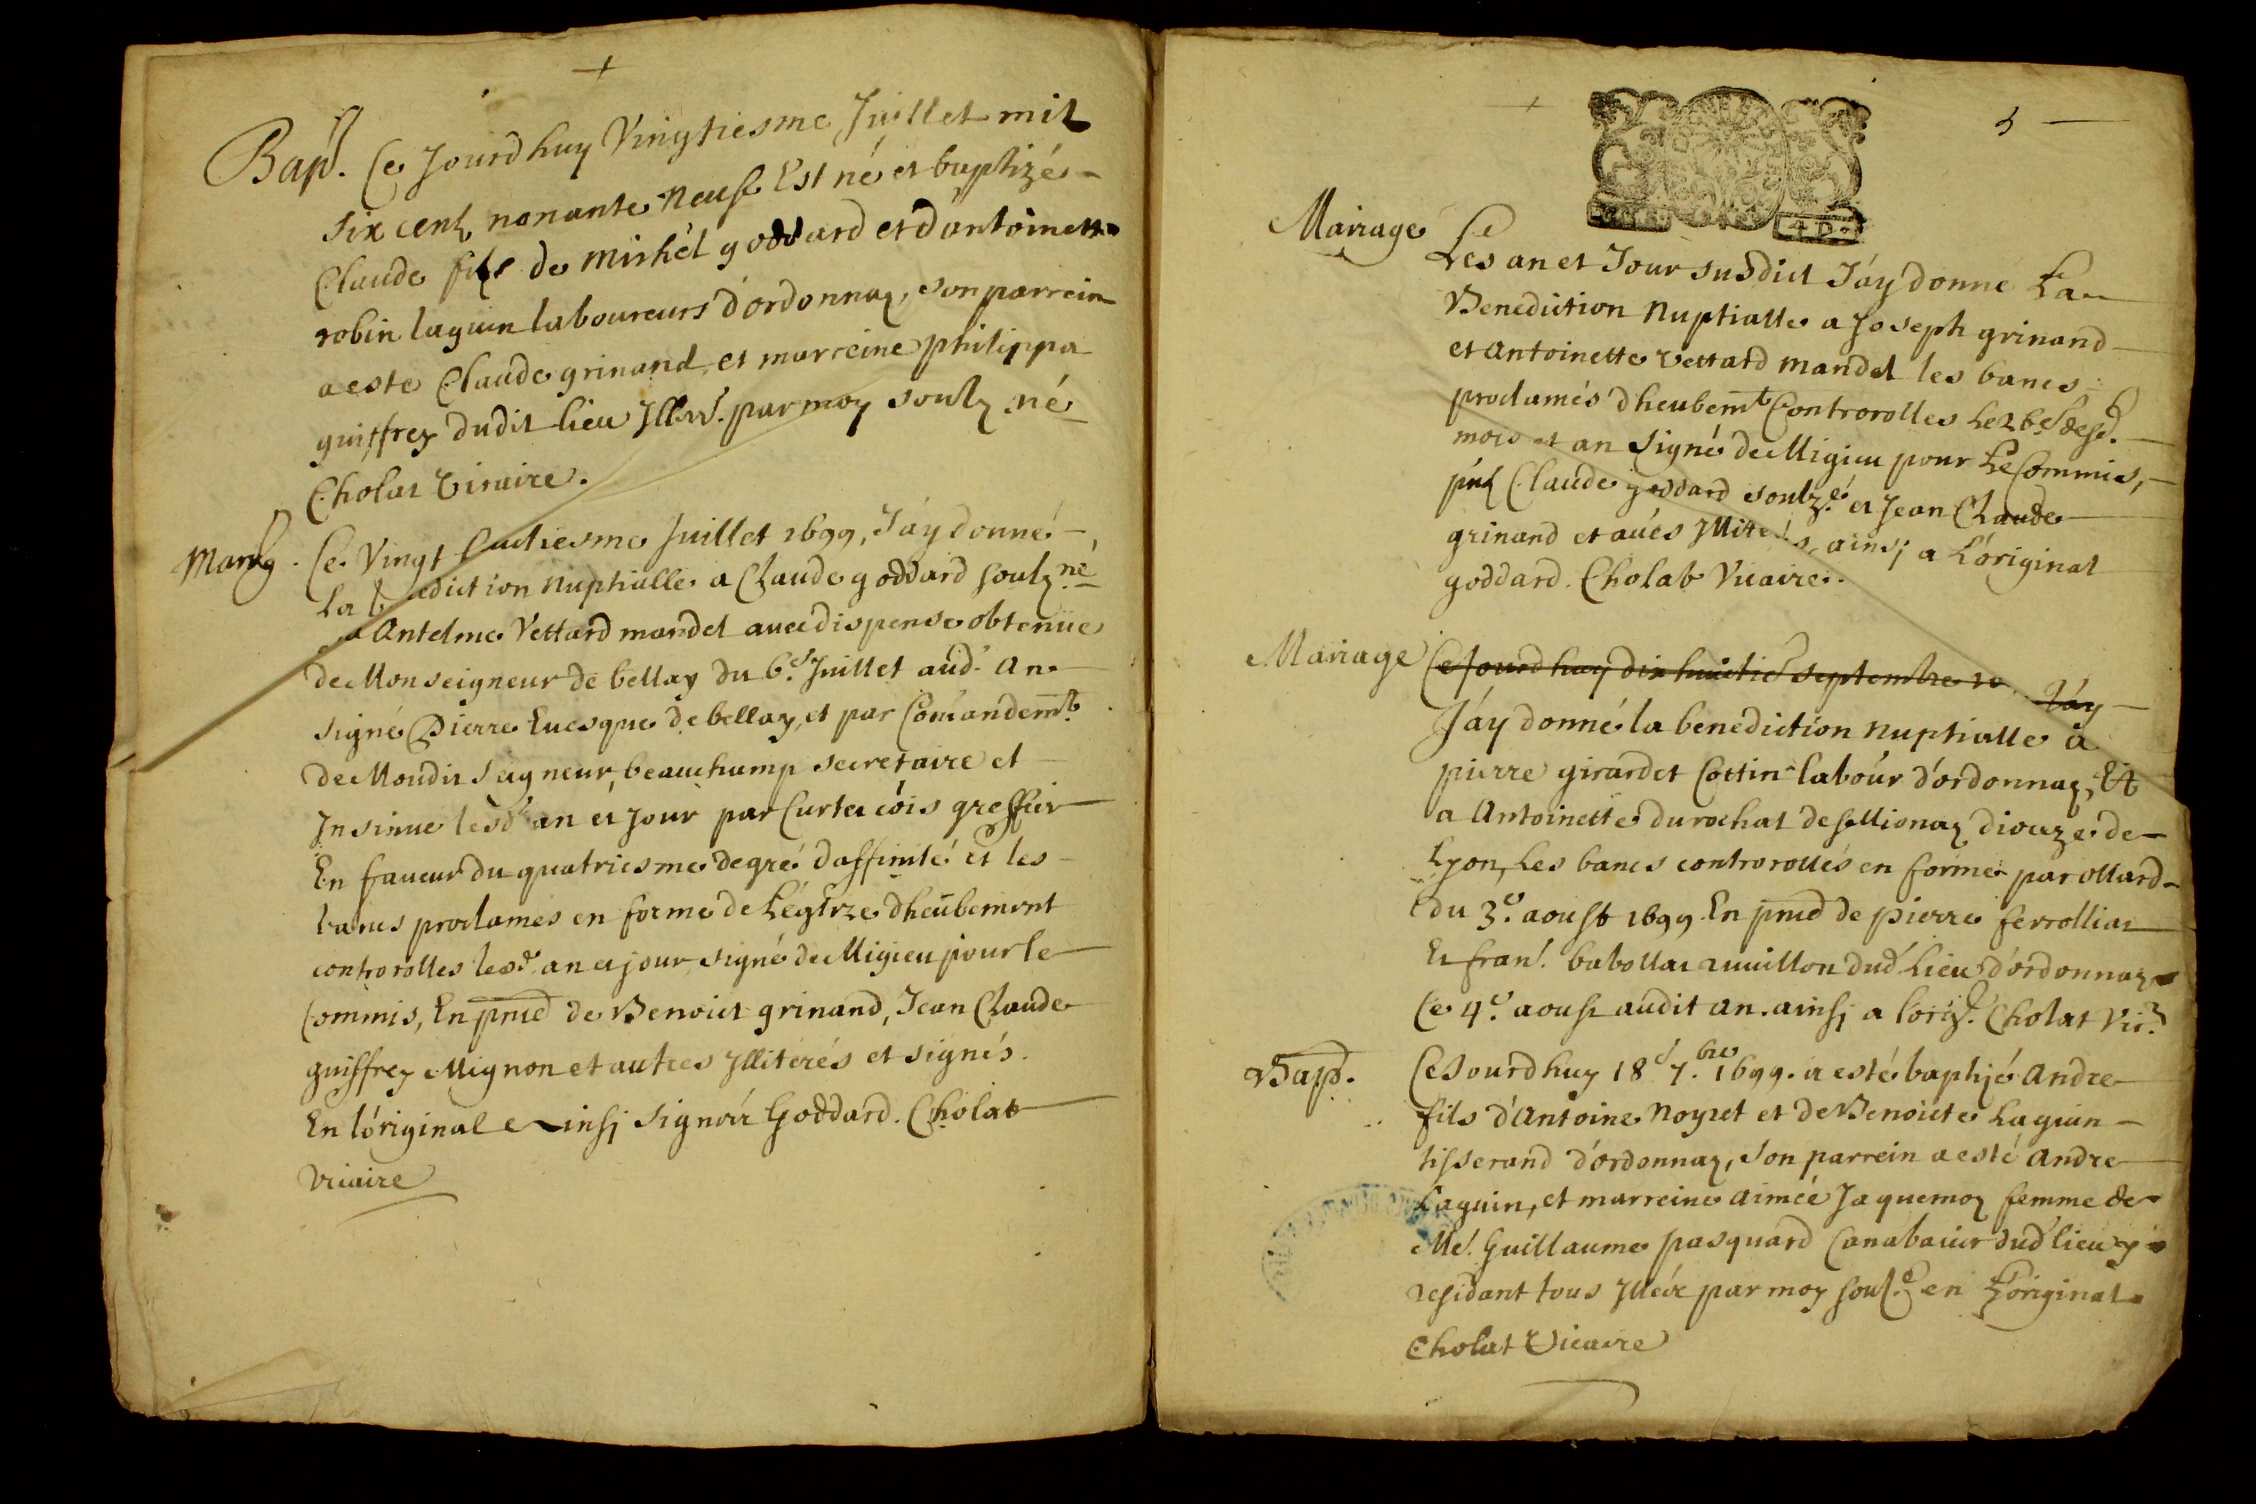 Bapt. Ce Jourdhuy Vingtiesme Juillet mil
six cent nonante neuf Est né et baptizé
Claude fils de Michel goddard et dantoinette
robin laguin laboureurs d'ordonnaz, son parrein
a este Claude grinand, et marreine philippa
guiffrey dudit lieu Jller. par moy soulz né
Cholat Vicaire.
Mariag. Ce Vingt huictiesme Juillet 1699, J'áy donné
La benediction nuptialle a Claude goddard soulz né
a Antelme Vettard mandel avec dispense obtenüe
de Monseigneur de bellay du 6.e Juillet aud. an
signé Pierre Euesque de bellay, et par Comandemt.
de Moudit seigneur, beauchamp secretaire et
Insinué lesd. an et jour par Curtet cóis greffier
En faueur du quatriesme degré daffinité et les
bancs proclames en forme de L'églize dheübement
controrolles lesd. an et jour signé de Migieu pour le
Commis, En pnce de Benoict grinand, Jean Claude
guiffrey Mignon et autres Jllitérés et signés.
En l'original ainsi signéz Goddard. Cholat
Vicaire
5
4 D.
Mariage Les an et Jour susdict J'áy donné La
Benediction Nuptialle a Joseph grinand
et Antoinette Vettard mandel les bancs
proclamés dheubemt Controrolles Le 26e desd.
mois et an signé de Migieu pour Le Commis,
pnt Claude goddard soulz.é et Jean Claude
grinand et aués Jllitéés, ainsi a L'original
goddard. Cholat Vicaire.
Mariage Ce Jourdhuy dix huictie septembre J'áy
J'áy donné la benediction nuptialle a
pierre girardet Cottin labour d'ordonnaz, Et
a Antoinette durochat de sellionaz dioceze de
Lyon, Les bancs controrollés en forme par ollard
du 3.e aoust 1699. En pnce de pierre ferrolliat
Et fran. babollat auuillon dud. Lieu d'ordonnaz
Ce 4.e aoust audit an. ainsi a l'orig. Cholat Vic.
Bapt. Ce Jourdhuy 18e 7.bre 1699. a esté baptizé Andre
fils d'Antoine Noyret et de Benoicte Laguin
tisserand d'ordonnaz, son parrein a esté Andre
Laguin, et marreine aimée Jaquemoz femme de
Me. Guillaume pasquard Canabasier dud lieu y
residant tous Jlléz par moy soulz.é en L'original
Cholat Vicaire